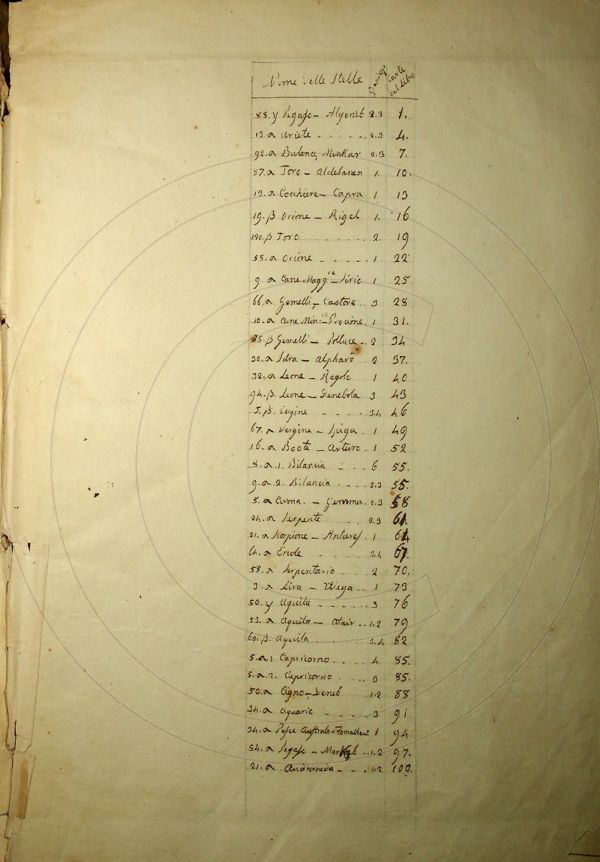 Nome delle Stelle Grandezze Carte del Libro
88. γ Pegaso - Algenib 2.3 1.
13. α Ariete - - - - 2.3 4.
92. α Balena, Menkar 2.3 7.
87. α Toro - Aldebaran 1. 10.
13. α Cocchiere - Capra 1 13
19. β Orione - Rigel 1. 16
112. β Toro - - - - 2. 19
58. α Orione - - - - 1 22
9. α Cane Magg.re - Sirio 1 25
66. α Gemelli - Castore 3 28
10. α Cane Min.re - Procione 1 31.
78. β Gemelli - Polluce - 2 34
30. α Idra - Alphard 2 37.
32. α Leone - Regolo 1 40
94. β Leone - Denebola 3 43
5. β Vergine - - - - 3.4 46
67. α Vergine - Spiga . 1 49
16. α Boote - Arturo . 1 52
8. α 1. Bilancia - - 6 55.
9. α 2. Bilancia - - - - 2.3 55.
5. α Corona - Gemma 2.3 58
24. α Serpente 2.3 61
21. α Scorpione - Antares 1 64
64. α Ercole - 3.4 67.
55. α Serpentario . 2 70.
3. α Lira - Wega . 1 73
50. γ Aquila - - - - 3 76
53. α Aquila - Atair - - 1.2 79
60. β Aquila 3.4 82
5. α 1. Capricorno - - - 4 85.
5. α 2. Capricorno - - 3 85.
50. α Cigno - Deneb 1.2 88
34. α Aquario - - - - 3 91
24. α Pesce Australe - Fomalhaut 1 94
54. α Pegaso - Markab - - 1.2 97.
21. α Andromeda - - - 1.2 100.